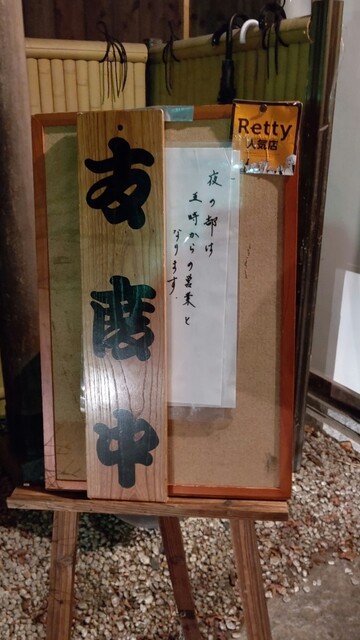 Retty
人気店
夜の部は
五時からの営業と
なります.
支度中